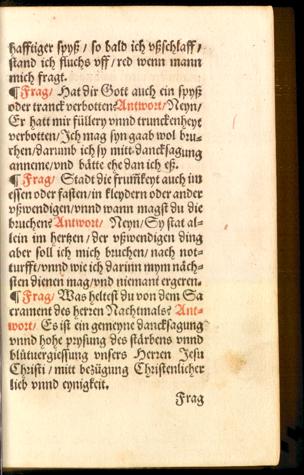 hafftiger spyß / so bald ich vßschlaff /
stand ich fluchs vff / red wenn mann
mich fragt.
¶ Frag / Hat dir Gott auch ein spyß
oder tranck verbotten? Antwort / Neyn /
Er hatt mir füllery vnnd trunckenheyt
verbotten / Jch mag syn gaab wol bru-
chen / darumb ich sy mitt dancksagung
anneme / vnd bätte ehe dan ich eß.
¶ Frag / Stadt die frum̃keyt auch im
essen oder fasten / in kleydern oder ander
vßwendigen / vnnd wann magst du die
bruchen? Antwort / Neyn / Sy stat al-
lein im hertzen / der vßwendigen ding
aber soll ich mich bruchen / nach not-
turfft / vnnd wie ich darinn mym näch-
sten dienen mag / vnd niemant ergeren.
¶ Frag / Was heltest du von dem Sa
crament des herren Nachtmals? Ant-
wort / Es ist ein gemeyne dancksagung
vnnd hohe prysung des stärbens vnnd
blůtuergiessung vnsers Herren Jesu
Christi / mitt bezügung Christenlicher
lieb vnnd eynigkeit.
Frag